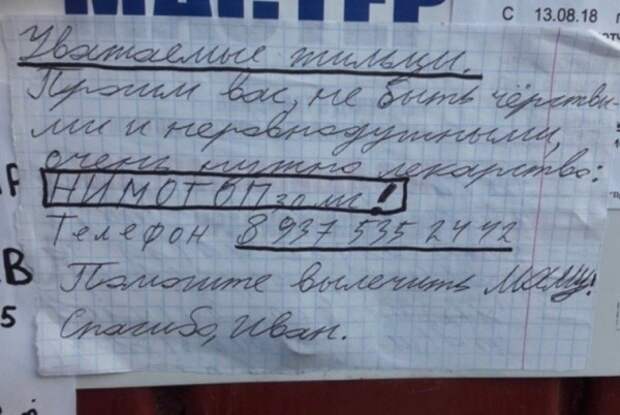 МАГ ТЕР
С 13.08.18
Уважаемые жильцы.
Просим вас, не быть чёрствы-
ми и неравнодушными,
очень нужно лекарство:
НИМОТОП, 30 мг!
Телефон 8 937 535 2442
Помогите вылечить маму!
Спасибо, Иван.
В
5